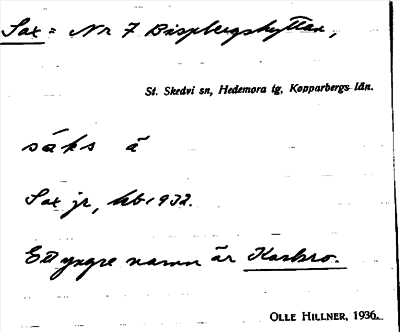 Sax = Nr 7 Bispbergshyttan,
St. Skedvi sn, Hedemora tg, Kopparbergs län.
säks ä
Sax jr, hb 1932.
Ett yngre namn är Karlsro.
OLLE HILLNER, 1936.